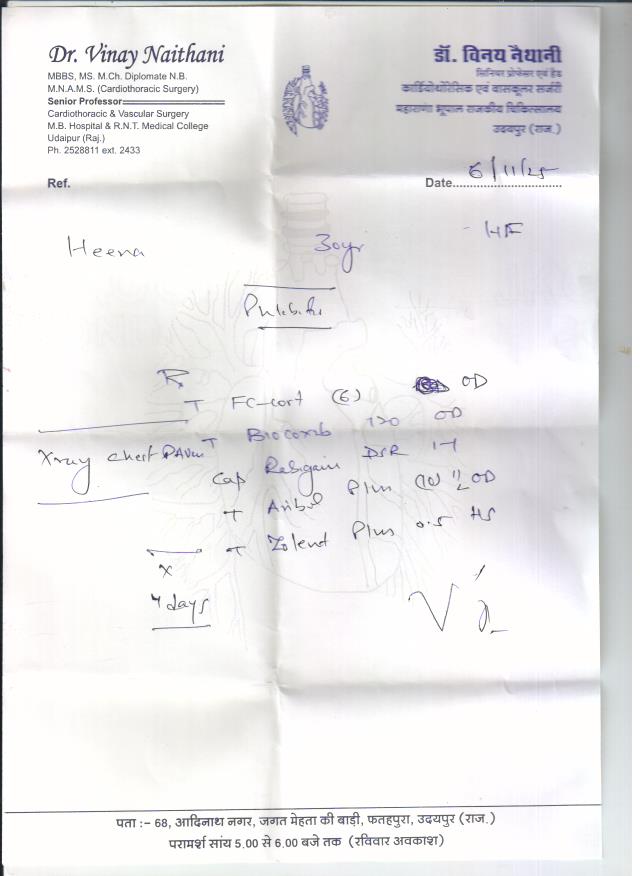 Dr. Vinay Naithani
MBBS, MS. M.Ch. Diplomate N.B.
M.N.A.M.S. (Cardiothoracic Surgery)
Senior Professor
Cardiothoracic & Vascular Surgery
M.B. Hospital & R.N.T. Medical College
Udaipur (Raj.)
Ph. 2528811 ext. 2433
डॉ. विनय नैथानी
सिनियर प्रोफेसर एवं हैड
कार्डियोथोरेसिक एवं वासकूलर सर्जरी
महाराणा भूपाल राजकीय चिकित्सालय
उदयपुर (राज.)
Ref.
Date 6/11/25
Heena 30yr
Rx
T FC-cort (6) OD
T Biocomb 120 OD
Xray chest PA View
Cap Rabigain DSR 1-1
T Plus (10) OD
T Plus 0.5 HS
x
4 days
पता :– 68, आदिनाथ नगर, जगत मेहता की बाड़ी, फतहपुरा, उदयपुर (राज.)
परामर्श सांय 5.00 से 6.00 बजे तक (रविवार अवकाश)